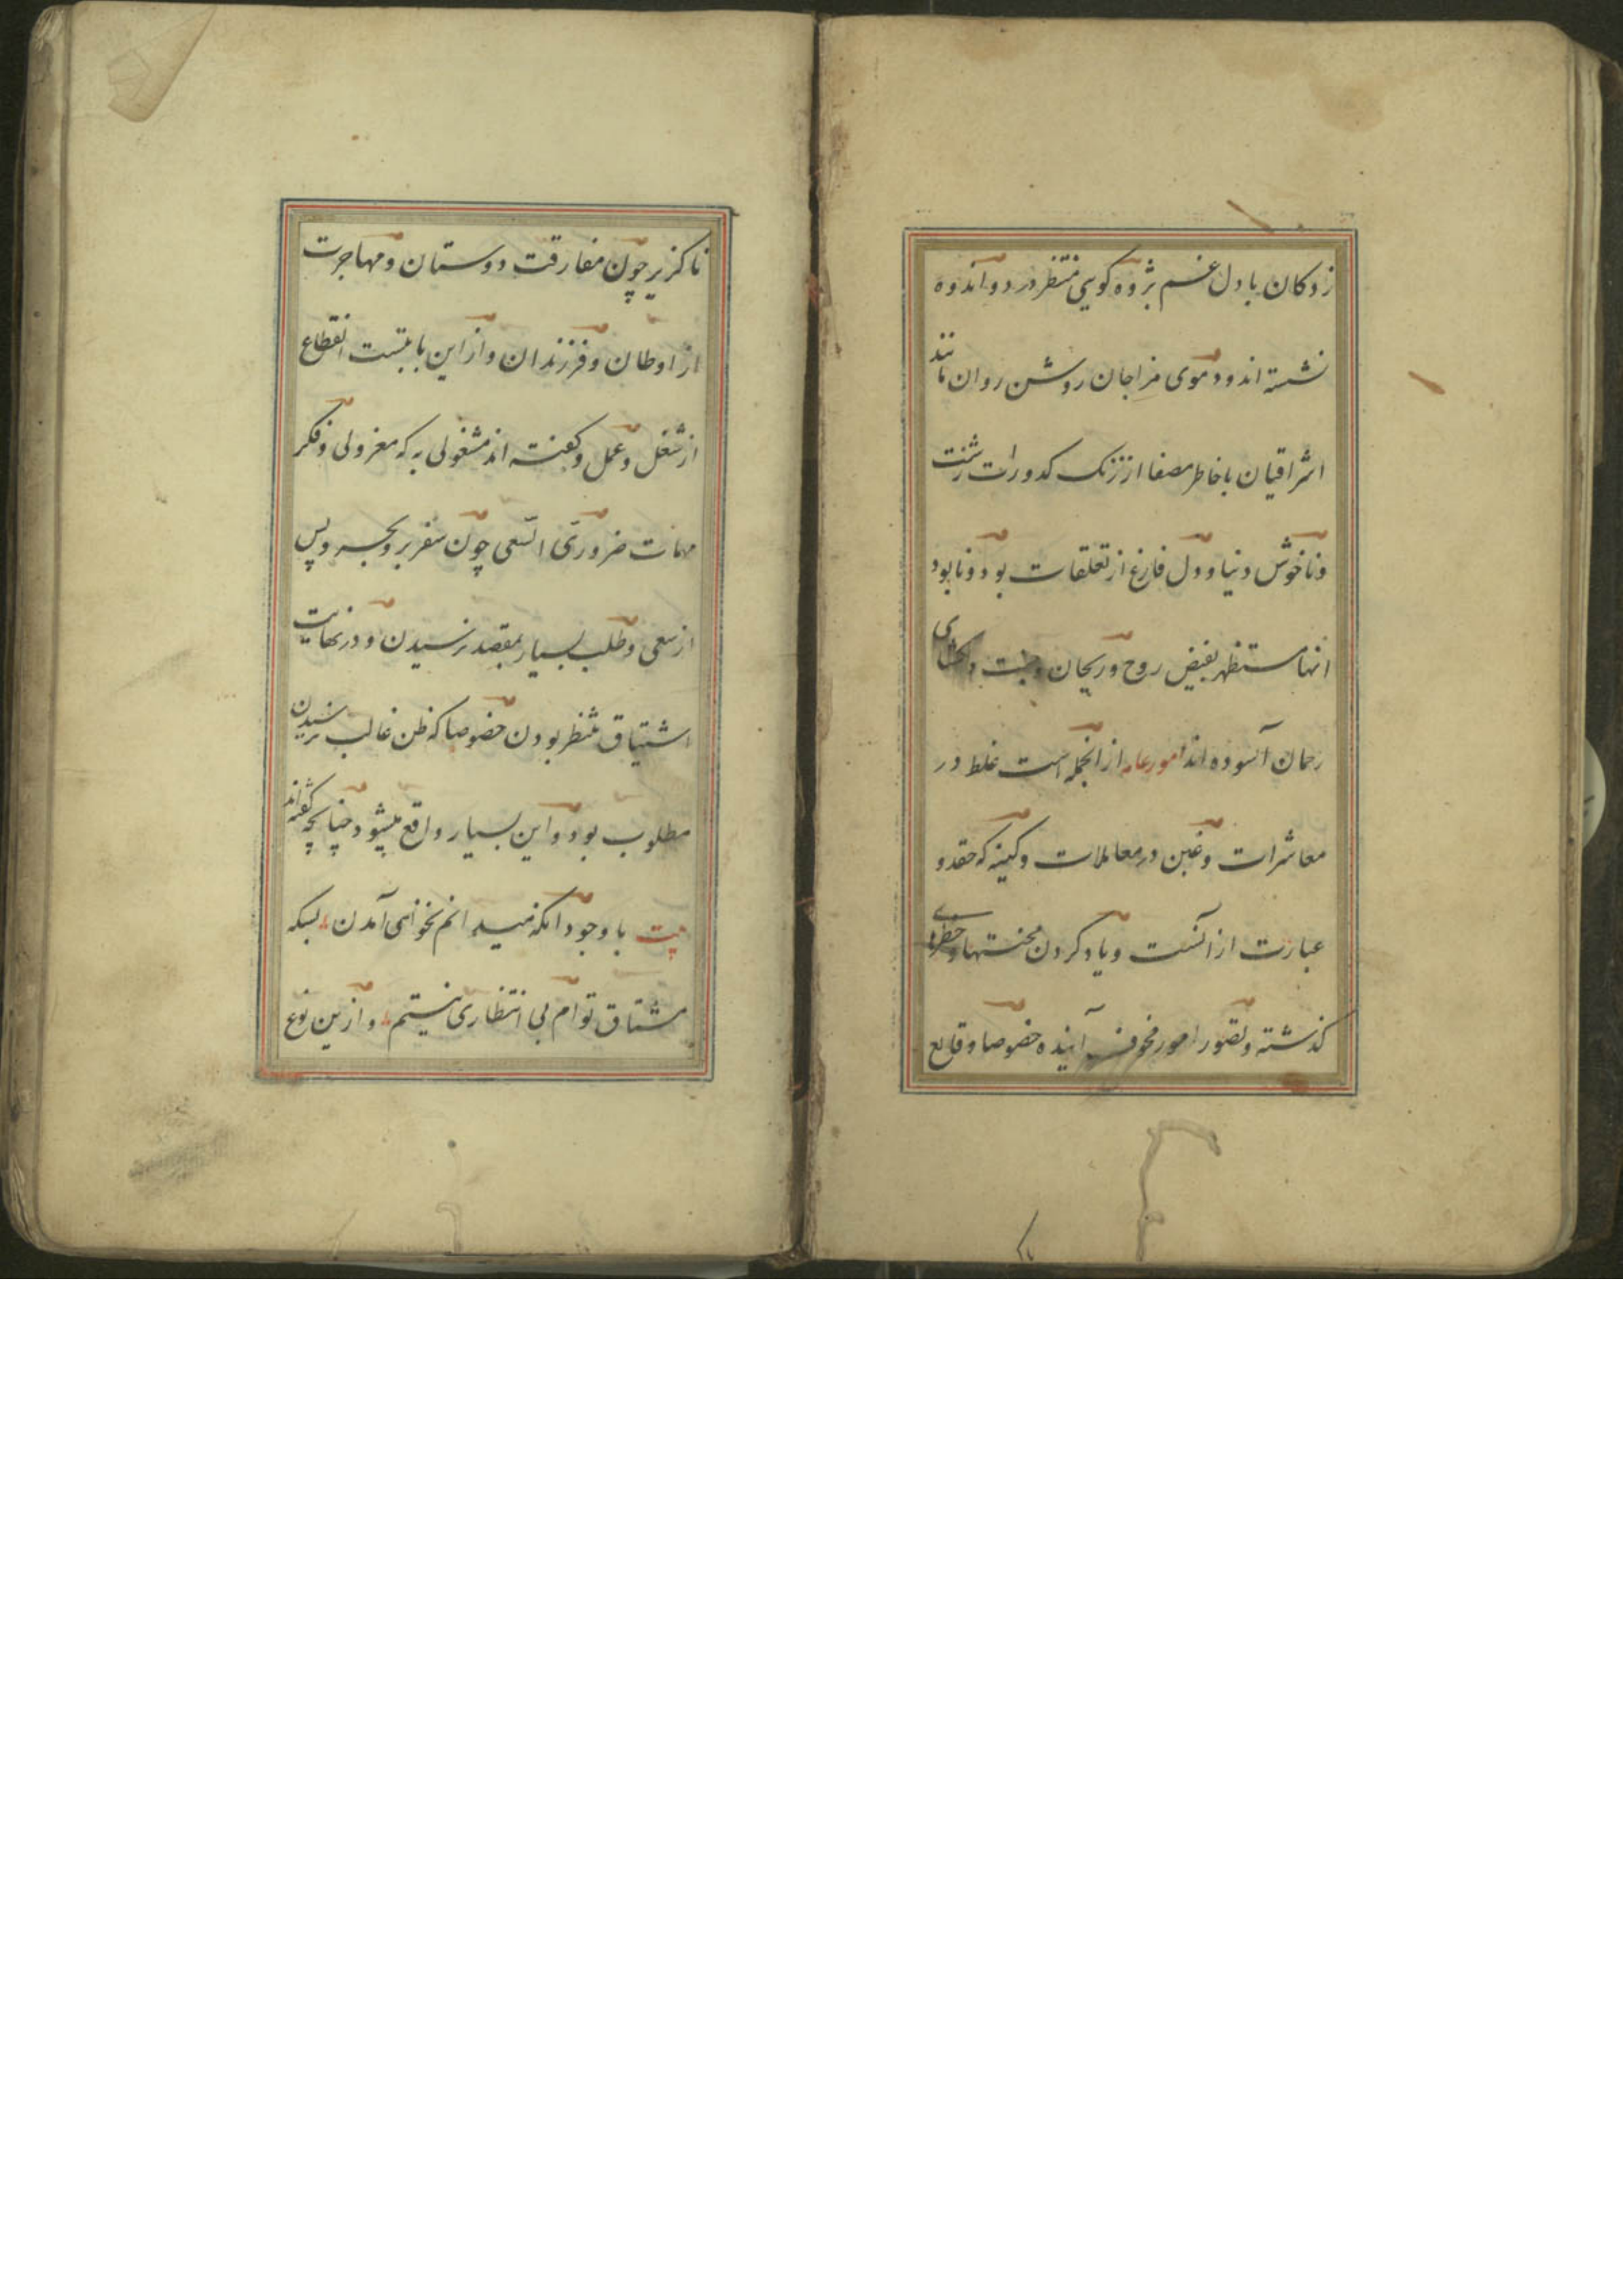 زدکان با دل غم پژوه کویی منتظر درد و اندوه
نشسته اند و دموی مزاجان روشن روان مانند
اشراقیان با خاطر مصفا از زنک کدورات زشت
و ناخوش دنیا و دل فارغ از تعلقات بود و نابود
انها مستظهر بفیض روح و ریحان و جنت
رحمان آسوده اند امور عامه از انجمله است غلط در
معاشرات و غبن در معاملات و کینه که حقد و
عبارت از انست و یاد کردن محنتها و خطرهای
کذشته و تصور امور مخوف آینده خصوصا وقایع
ناکزیر چون مفارقت دوستان و مهاجرت
از اوطان و فرزندان و از این بابتست انقطاع
از شغل و عمل و کفته اند مشغولی به که معزولی و فکر
مهمات ضروری السعی چون سفر بر و بحر و پس
از سعی و طلب بسیار بمقصد نرسیدن و در نهایت
اشتیاق منتظر بودن خصوصا که ظن غالب نرسیدن
مطلوب بود و این بسیار واقع میشود چنانچه کفته اند
بیت با وجود انکه میدانم نخواهی آمدن بسکه
مشتاق توام بی انتظاری نیستم و از ین نوع